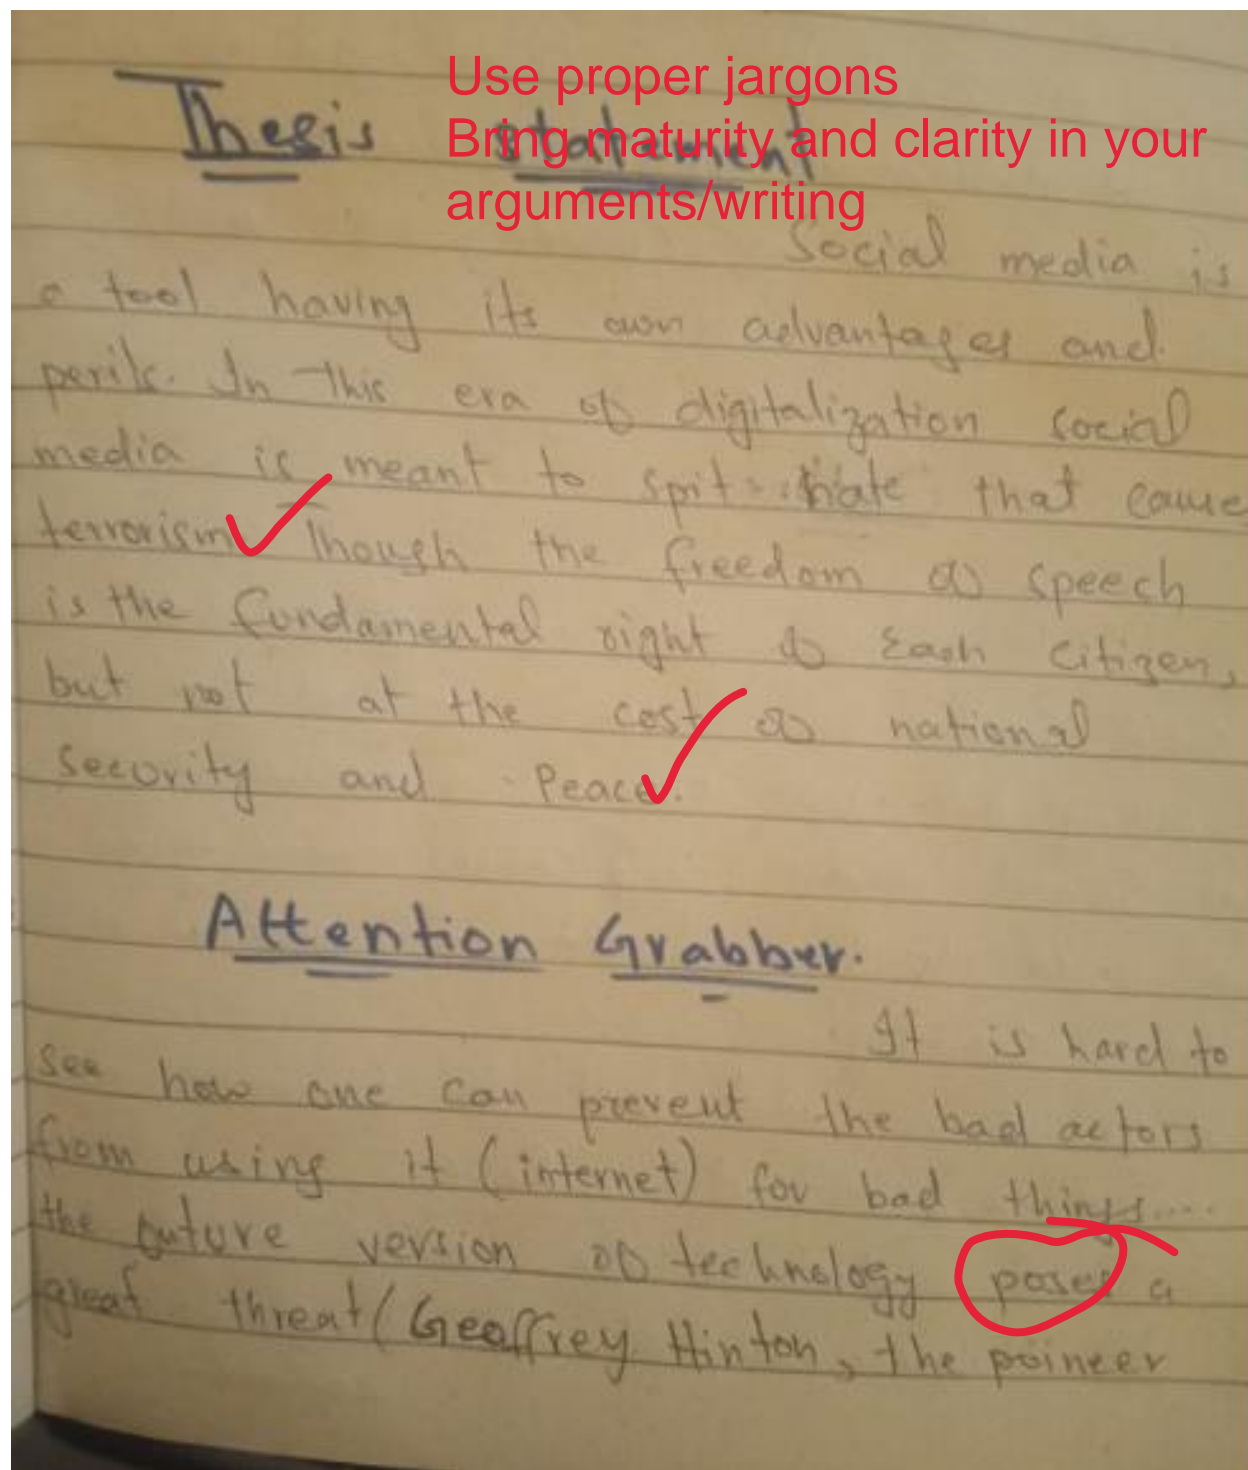 Use proper jargons
Bring maturity and clarity in your
arguments/writing
Thesis statement
Social media is
a tool having its own advantages and
perils. In this era of digitalization social
media is meant to spit hate that cause
terrorism. Though the freedom of speech
is the fundamental right of each citizen,
but not at the cost of national
security and Peace.
Attention Grabber.
It is hard to
see how one can prevent the bad actors
from using it (internet) for bad things....
the future version of technology poses a
great threat (Geoffrey Hinton, the poineer